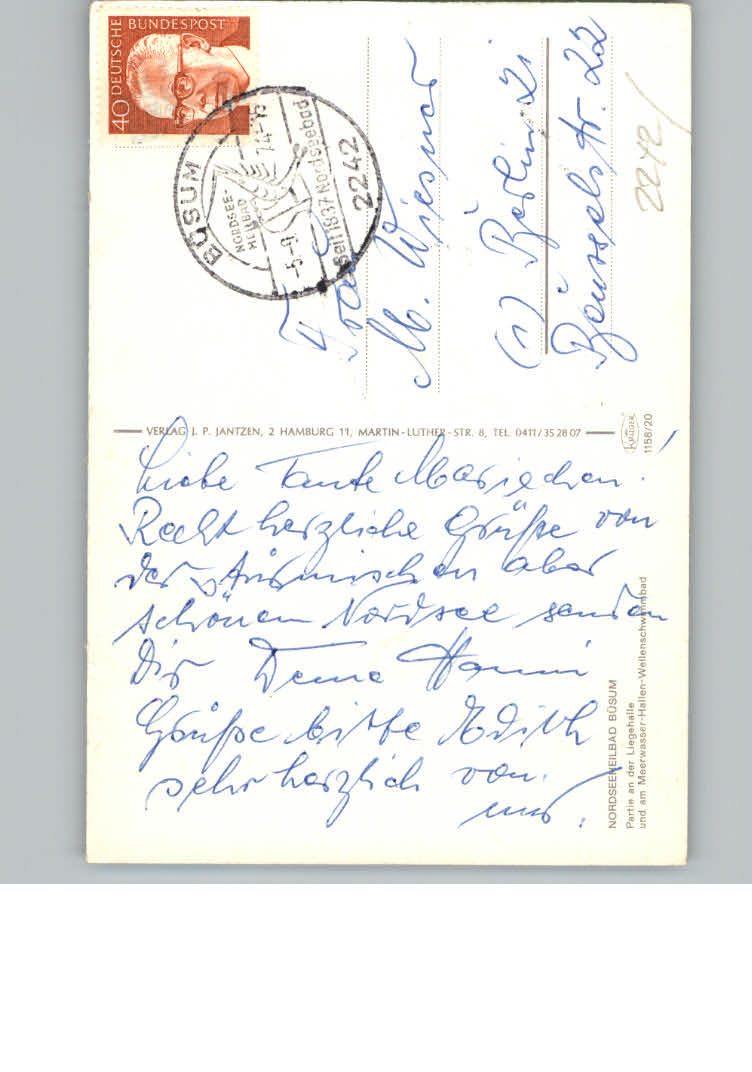 DEUTSCHE BUNDESPOST
40
BÜSUM
NORDSEE-
HEILBAD
-5.-9.74-15
Seit 1837 Nordseebad
2242
Frau
M. Wiesner
(1) Berlin 21
Beusselstr. 22
2242
VERLAG J. P. JANTZEN, 2 HAMBURG 11, MARTIN-LUTHER-STR. 8, TEL. 0411/35 28 07
KRÜGER
1158/20
Liebe Tante Mariechen.
Recht herzliche Grüße von
der stürmischen aber
schönen Nordsee senden
Dir Deine Hanni
Grüße bitte Edith
sehr herzlich von
uns.
NORDSEEHEILBAD BÜSUM
Partie an der Liegehalle
und am Meerwasser-Hallen-Wellenschwimmbad